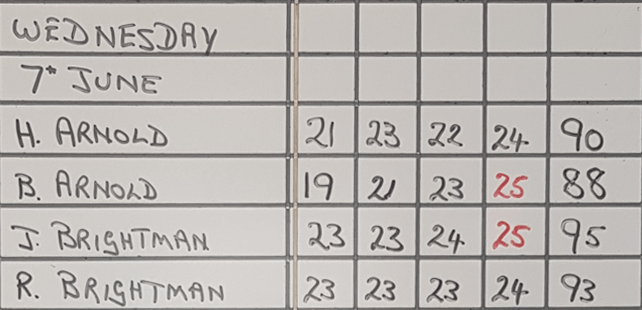 WEDNESDAY
7th JUNE
H. ARNOLD 21 23 22 24 90
B. ARNOLD 19 21 23 25 88
J. BRIGHTMAN 23 23 24 25 95
R. BRIGHTMAN 23 23 23 24 93